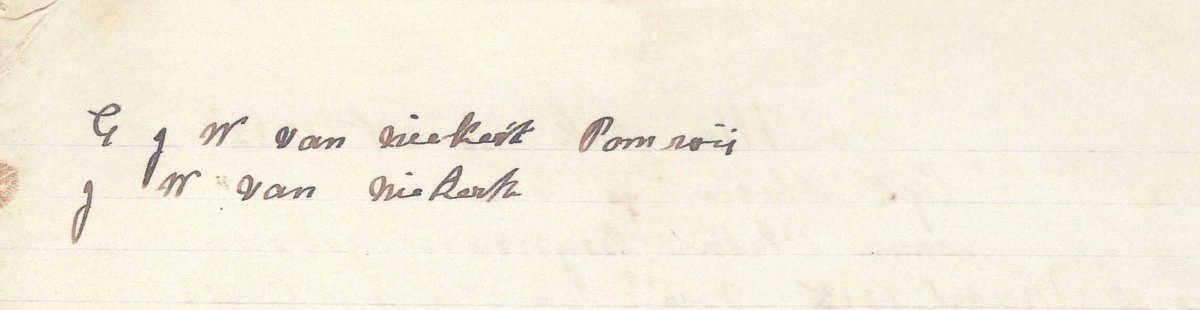 G J W van niekerk Pomroij
J W van niekerk